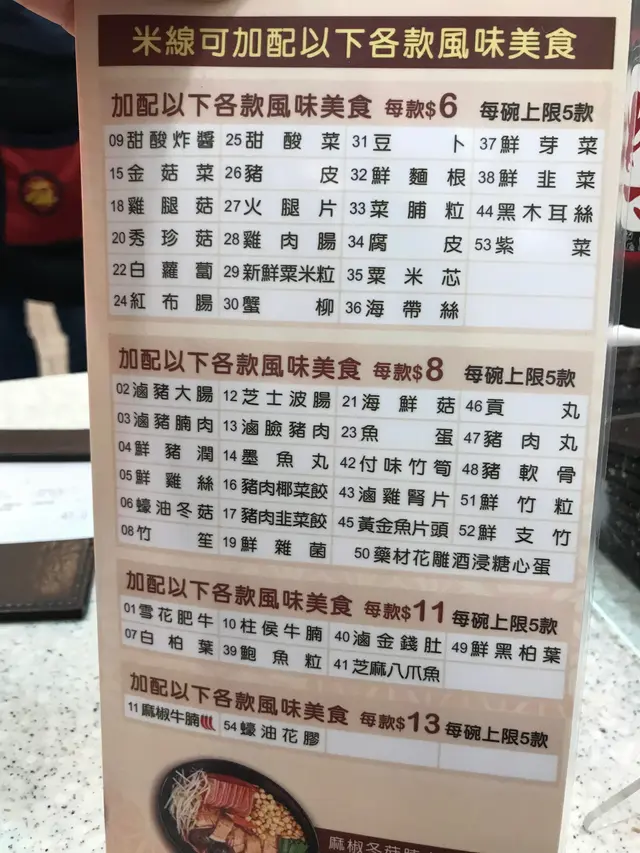 米線可加配以下各款風味美食
加配以下各款風味美食 每款$6 每碗上限5款
09甜酸炸醬 25甜酸菜 31豆卜 37鮮芽菜
15金菇菜 26豬皮 32鮮麵根 38鮮韭菜
18雞腿菇 27火腿片 33菜脯粒 44黑木耳絲
20秀珍菇 28雞肉腸 34腐皮 53紫菜
22白蘿蔔 29新鮮粟米粒 35粟米芯
24紅布腸 30蟹柳 36海帶絲
加配以下各款風味美食 每款$8 每碗上限5款
02滷豬大腸 12芝士波腸 21海鮮菇 46貢丸
03滷豬腩肉 13滷臉豬肉 23魚蛋 47豬肉丸
04鮮豬潤 14墨魚丸 42付味竹筍 48豬軟骨
05鮮雞絲 16豬肉椰菜餃 43滷雞腎片 51鮮竹粒
06蠔油冬菇 17豬肉韭菜餃 45黃金魚片頭 52鮮支竹
08竹笙 19鮮雜菌 50藥材花雕酒浸糖心蛋
加配以下各款風味美食 每款$11 每碗上限5款
01雪花肥牛 10柱侯牛腩 40滷金錢肚 49鮮黑柏葉
07白柏葉 39鮑魚粒 41芝麻八爪魚
加配以下各款風味美食 每款$13 每碗上限5款
11麻椒牛腩 54蠔油花膠
麻椒冬菇